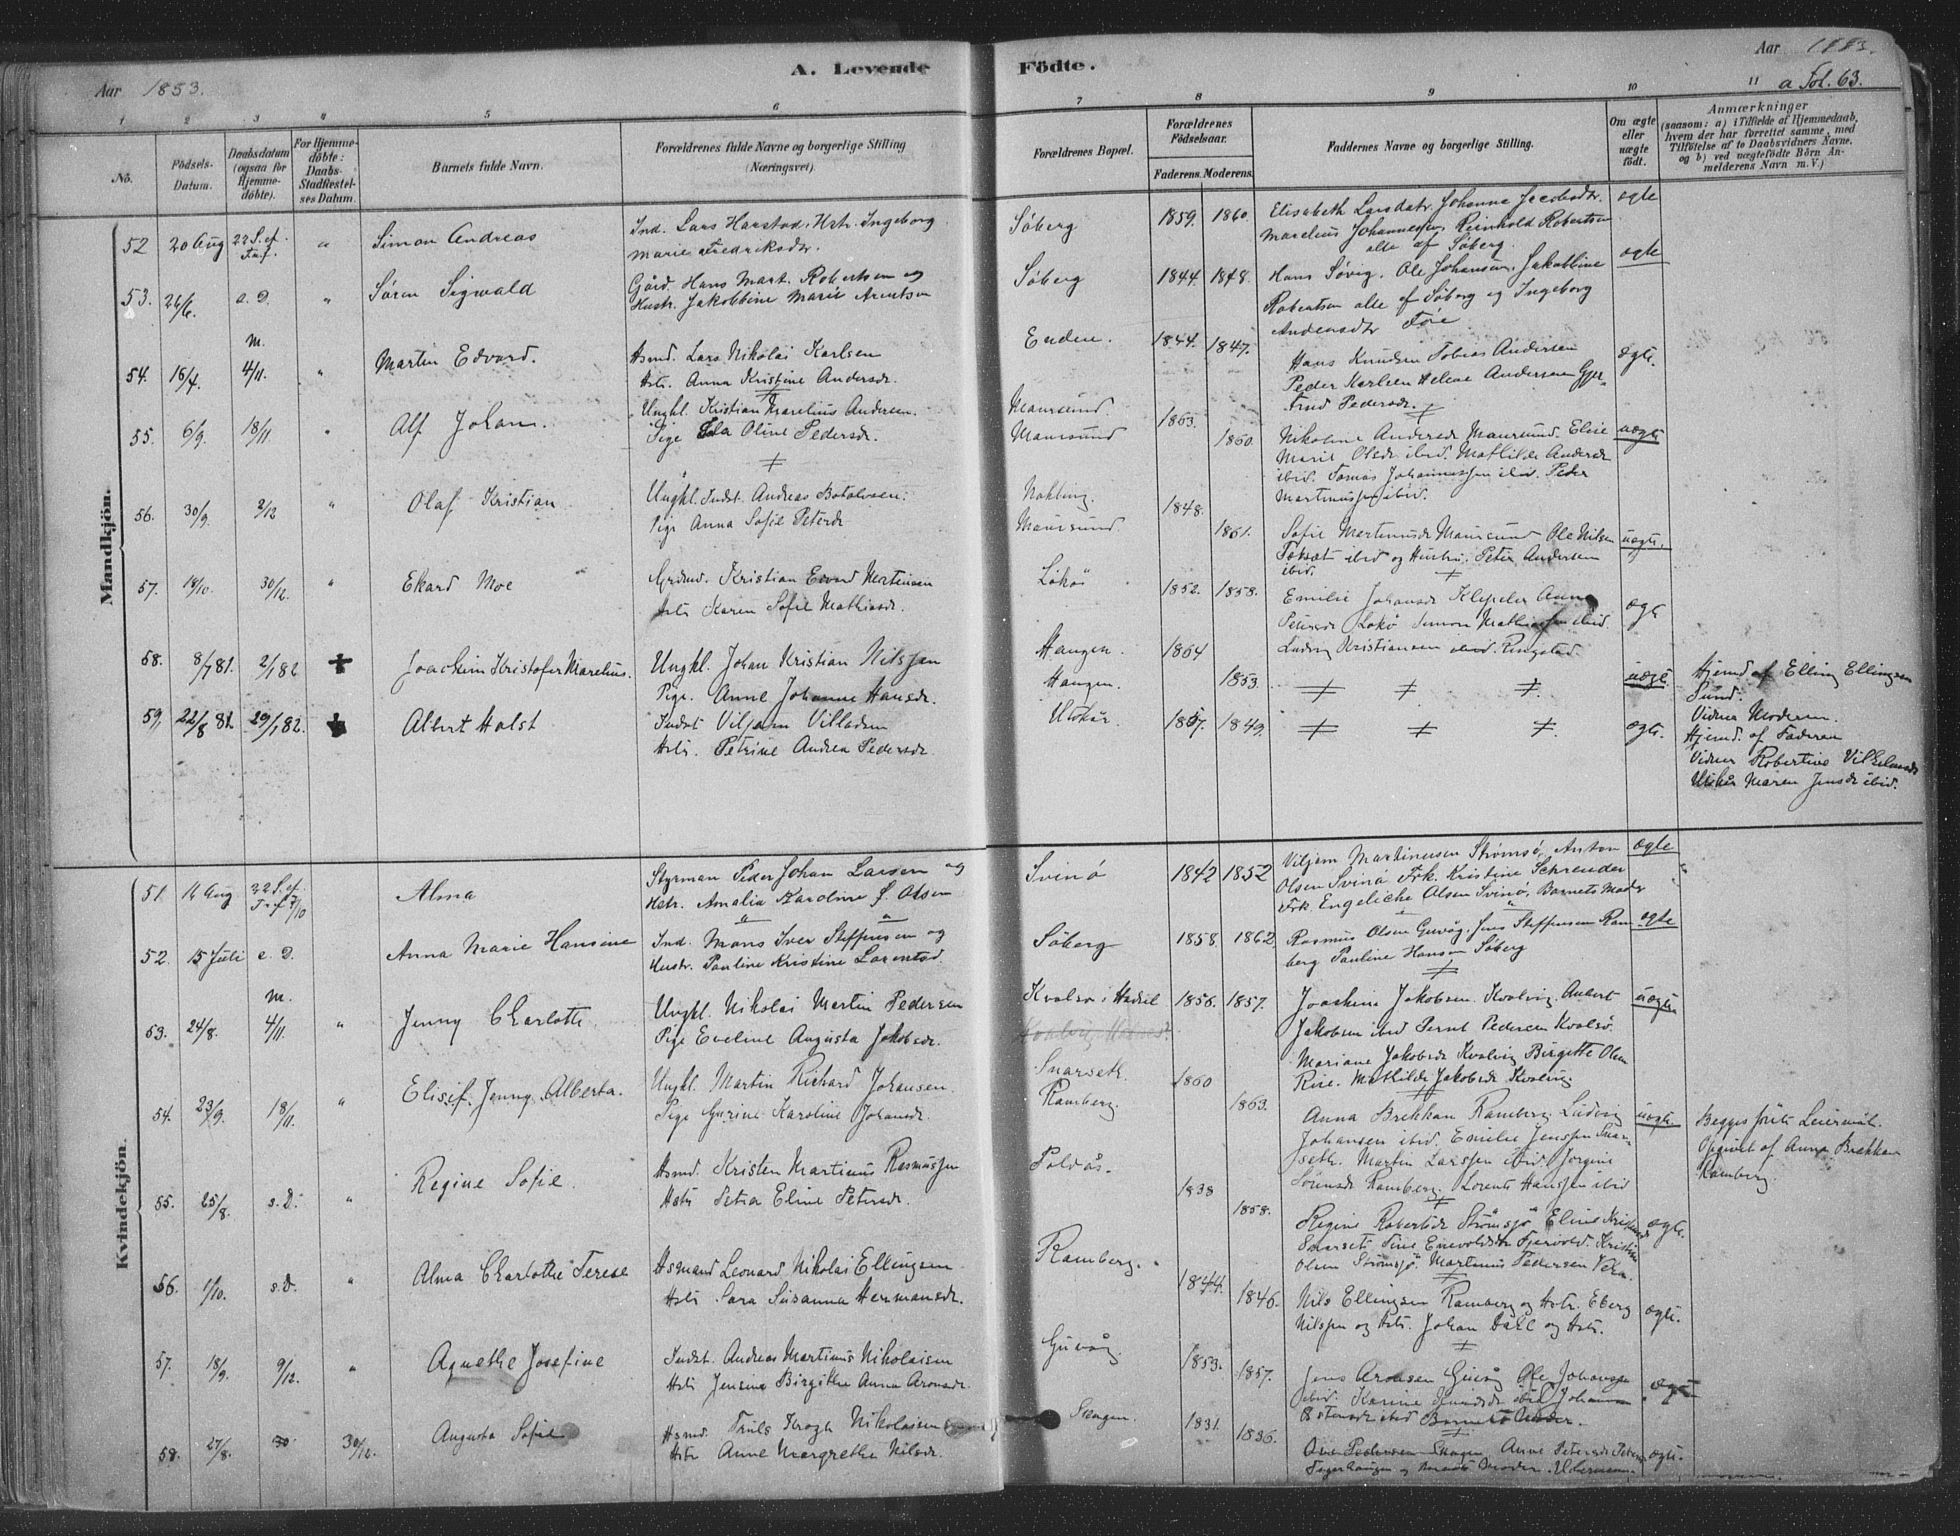 Aar 1853.
A. Levende
Födte.
Aar 1883.
a Fol. 63.
1 2 3 4 5 6 7 8 9 10 11
No.
Födsels-Datum.
Daabsdatum (ogsaa for Hjemmedöbte).
For Hjemmedöbte: Daabs-Stadfæstelses Datum.
Barnets fulde Navn.
Forældrenes fulde Navne og borgerlige Stilling (Næringsvei).
Forældrenes Bopæl.
Forældrenes Födselsaar.
Faderens. Moderens.
Faddernes Navne og borgerlige Stilling.
Om ægte eller uægte födt.
Anmærkninger
(saasom: a) i Tilfælde af Hjemmedaab, hvem der har forrettet samme, med Tilföielse af to Daabsvidners Navne, og b) ved uægtefödte Börn Anmelderens Navn m. V.)
Mandkjön.
52 20 Aug 22 S. ef. Tref. " Simon Andreas
Ind. Lars Harstad, Hstr. Ingeborg
Marie Fredriksdr.
Söberg 1859. 1860.
Elisabeth Larsdatr. Johanne Jacobsdtr.
Marelius Johannessen, Reinhold Robertsen
alle af Söberg.
ægte
53. 26/6. e. D. " Sören Sigwald
Gård. Hans Mart. Robertsen og
Hustr. Jakobbine Marie Arentsen
Söberg 1844 1848.
Hans Sövig. Ole Johansen, Jakobbine
Robertsen alle af Söberg og Ingeborg
Andersdtr Före
ægte
m.
54. 16/7. 4/11. " Martin Edvard.
Hsmd. Lars Nikolai Karlsen
Hstr. Anna Kristine Andersdr.
Enden. 1844. 1847.
Hans Knudsen Tobias Andersen
Peder Karlsen Helene Andersen
Pedersdr.
ægte.
55. 6/9. 18/11 " Alf Johan.
Ungkl. Kristian Marelius Andersen.
Pige Ida Oline Pedersdr.
Maursund.
Maursund
1863. 1860.
Nikoline Andersdr Maursund. Elise
Marie Olsdr ibid. Mathilde Andersdr
ibid. Tomas Johannessen ibid. Peder
Martinussen ibid.
uægte
56. 30/9. 2/12 " Olaf Kristian
Ungkl. Indst. Andreas Botolvsen.
Pige Anna Sofie Petersdr
Maursund
1848. 1861.
Sofie Martinusdr Maursund Ole Nilsen
ibid og Hustru. Peter Andersen
ibid.
uægte.
57. 14/10. 30/12. " Ekard Moe
Grdmd. Kristian Edvard Mortensen
Hstr Karen Sofie Mathiasdr.
Lökö 1852. 1858.
Emilie Johansdr Klepeler Anna
Petersdr Lökö Simon Mathiassen ibid.
Ludvig Kristiansen Ringstad.
ægte
58. 8/7 81. 2/1 82 Joachim Kristofer Marelius.
Ungkl. Johan Kristian Nilssen
Pige. Anne Johanne Hansdr.
Haugen.
Haugen.
1864 1853.
uægte.
Hjemd af Elling Ellingsen
Sund.
Vidne Moderen.
59, 22/8 81. 29/1 82. Albert Holst
Indst Viljam Villadsen
Hstr. Petrine Andrea Pedersdr.
Utskår. 1857. 1849.
ægte.
Hjemd. af Faderen
Vidner Robertine Vilhelmsdr
Utskår Maren Jensdr ibid.
Kvindekjön.
51. 14 Aug 22 S. ef. Tref 7/10 Alma
Styrman Peder Johan Larsen og
Hstr. Amalia Karoline f. Olsen
Svinö 1842 1852
Viljam Martinusen Strömsö, Anton
Olsen Svinö Frk. Kristine Schrender
Frk. Engeliche Olsen Svinö, Barnets Moder
ægte
52. 15 Juli e. D. Anna Marie Hansine
Ind. Mons Iver Steffensen og
Hustr. Pauline Kristine Larentsd.
Söberg 1858. 1862
Rasmus Olsen Guvåg, Jens Steffensen Ramberg
Pauline Hansen Söberg
ægte
m.
53. 24/8. 4/11. " Jenny Charlotte
Ungkl. Nikolai Martin Pedersen
Pige Eveline Augusta Jakobsdr.
Kvalsö i Hadsel 1856. 1857.
Joachim Jakobsen. Kvalvig. Aubert
Jakobsen ibid Bernt Pedersen Kvalsö.
Mariane Jakobsdr Kvalvig Birgitte Olsen
Rise. Mathilde Jakobsdr Kvalvig
uægte
54. 23/9. 18/11. " Elisif. Jenny Alberta.
Ungkl. Martin Richard Johansen.
Pige Gurine Karoline Johansdr.
Snarseth.
Ramberg.
1860 1863.
Anna Brekkan Ramberg. Ludvig
Johansen ibid. Emilie Jenssen Snarseth.
Martin Larssen ibid Jorgine
Sörensdr Ramberg. Lorents Hanssen ibid
uægte.
Begges förste Leiermål.
Opgivet af Anna Brekkan
Ramberg.
55. 25/8. s. D. " Regine Sofie.
Hsmd. Kristen Martinus Rasmussen
Hstr Petra Eline Petersdr.
Poldås. 1838 1858.
Regine Robertsdr Strömsjö, Eline
Snarset Tine Enevoldsdtr Fjervold. Kristine
Olsen Strömsjö. Martinus Pedersen
ægte.
56. 1/10. s. d. " Alma Charlothe Terese
Hsmand Leonard Nikolai Ellingsen
Hstr. Sara Susanna Hermansdr.
Ramberg. 1844. 1846.
Nils Ellingsen Ramberg og Hstr. Eberg
Nilssen og Hstr. Johan Dahl og Hstr.
ægte.
57. 18/9. 9/12. " Agnethe Josefine
Indst. Andreas Martinus Nikolaisen
Hstr Jensine Birgithe Anna Aronsdr.
Guvåg. 1853. 1857.
Jens Aronsen Guvåg Ole Johanssen
ibid. Karine ibid Johanna
ibid Barnets Moder.
ægte
58. 27/8. 30 30/12. Augusta Sofie
Hsmd. Truls Krogh Nikolaisen
Hstr Anne Margrethe Nilsdr.
Skagen. 1831. 1836.
Ove Pedersen Skagen, Anne Petersdr
ægte.